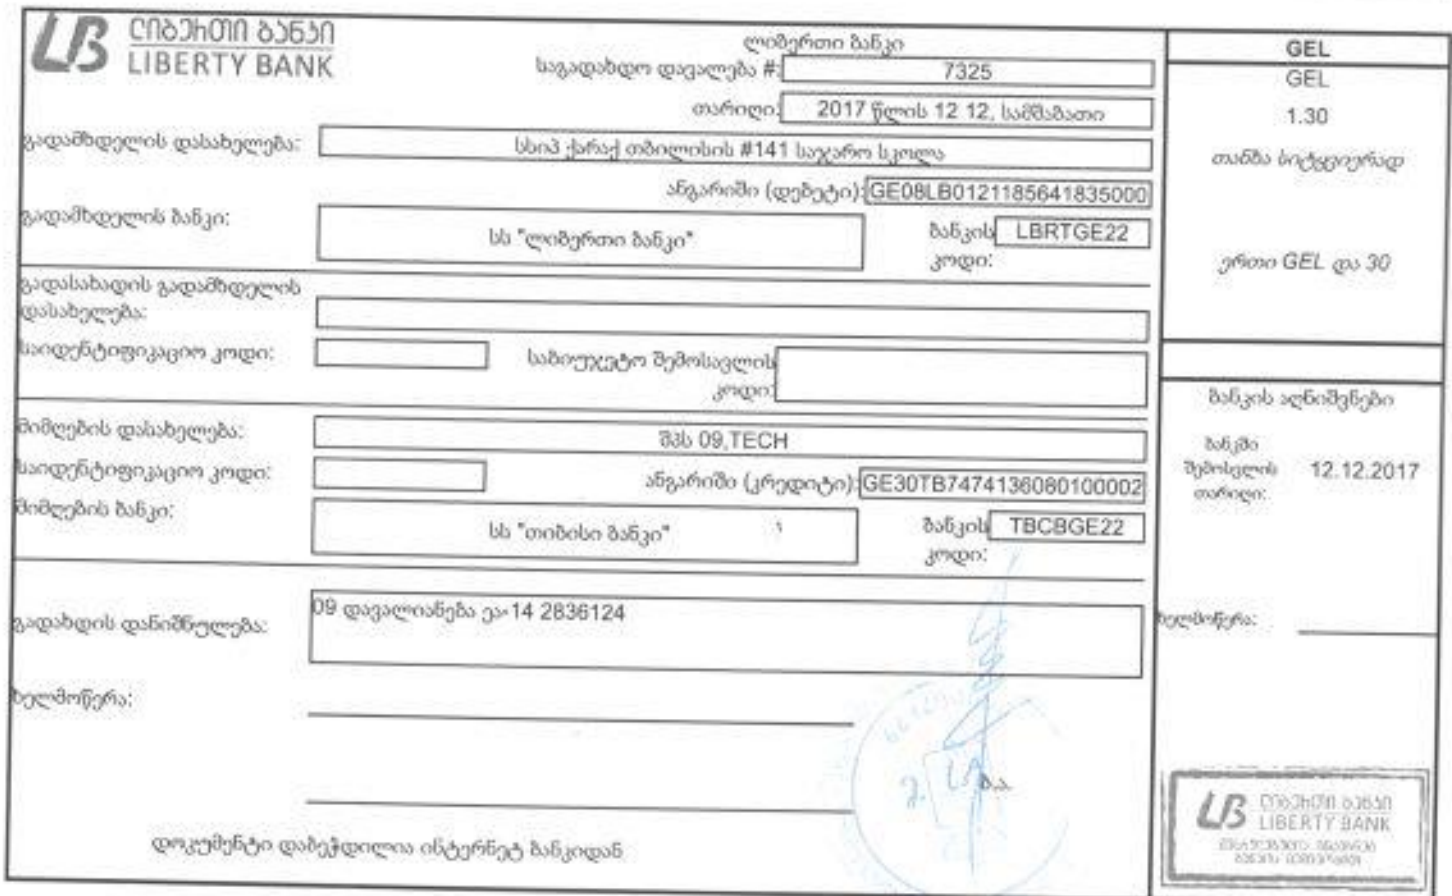 LB ლიბერთი ბანკი
LIBERTY BANK
ლიბერთი ბანკი
საგადახდო დავალება #: 7325
თარიღი: 2017 წლის 12 12, სამშაბათი
გადამხდელის დასახელება: სსიპ ქარაქ თბილისის #141 საჯარო სკოლა
ანგარიში (დებეტი): GE08LB0121185641835000
გადამხდელის ბანკი: სს "ლიბერთი ბანკი" ბანკის კოდი: LBRTGE22
გადასახადის გადამხდელის
დასახელება:
საიდენტიფიკაციო კოდი: საბიუჯეტო შემოსავლის
კოდი:
მიმღების დასახელება: შპს 09,TECH
საიდენტიფიკაციო კოდი: ანგარიში (კრედიტი): GE30TB7474136080100002
მიმღების ბანკი: სს "თიბისი ბანკი" ბანკის კოდი: TBCBGE22
გადახდის დანიშნულება: 09 დავალიანება ეა-14 2836124
ხელმოწერა:
ბ.ა.
დოკუმენტი დაბეჭდილია ინტერნეტ ბანკიდან
GEL
GEL
1.30
თანხა სიტყვიერად
ერთი GEL და 30
ბანკის აღნიშვნები
ბანკში
შემოსვლის 12.12.2017
თარიღი:
ხელმოწერა:
LB ლიბერთი ბანკი
LIBERTY BANK